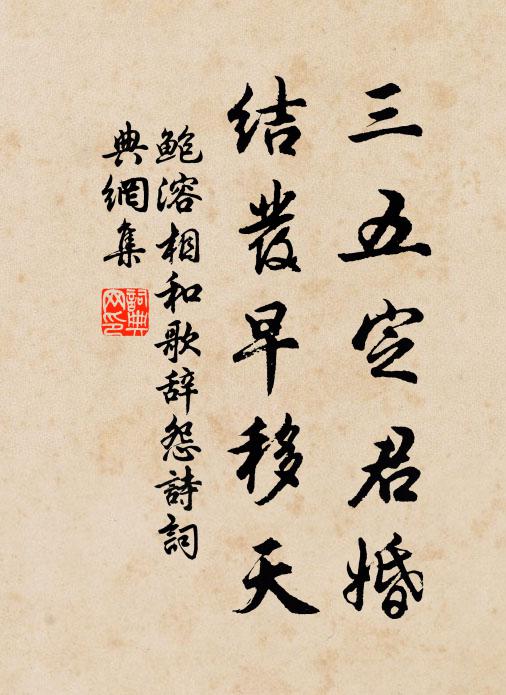 三五定君婚
结发早移天
鲍溶相和歌辞怨詩詞
典網集
詞典
网印